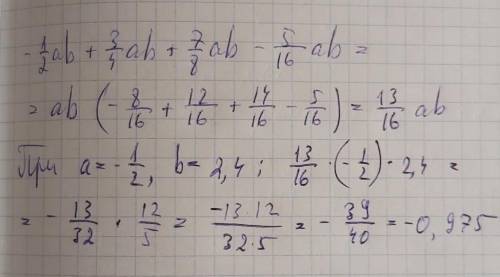 -1/2 ab + 3/4 ab + 7/8 ab - 5/16 ab =
= ab (-8/16 + 12/16 + 14/16 - 5/16) = 13/16 ab
При a = -1/2, b = 2,4 ; 13/16 · (-1/2) · 2,4 =
= - 13/32 · 12/5 = -13·12/32·5 = - 39/40 = -0,975